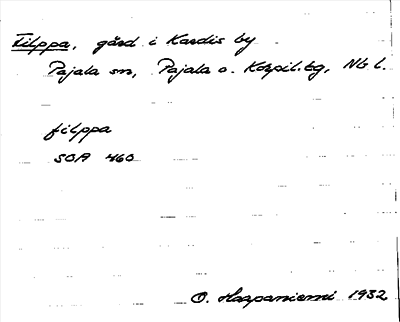 Filppa, gård i Kardis by
Pajala sn, Pajala o. Korpil. tg, Nb l.
filppa
SOA 460
O. Harpaniemi 1932